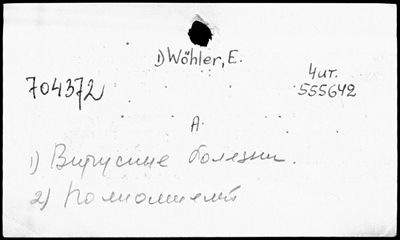 1) Wöhler, E.
704372
4 ит.
555642
A.
1) Вирусные болезни.
2)